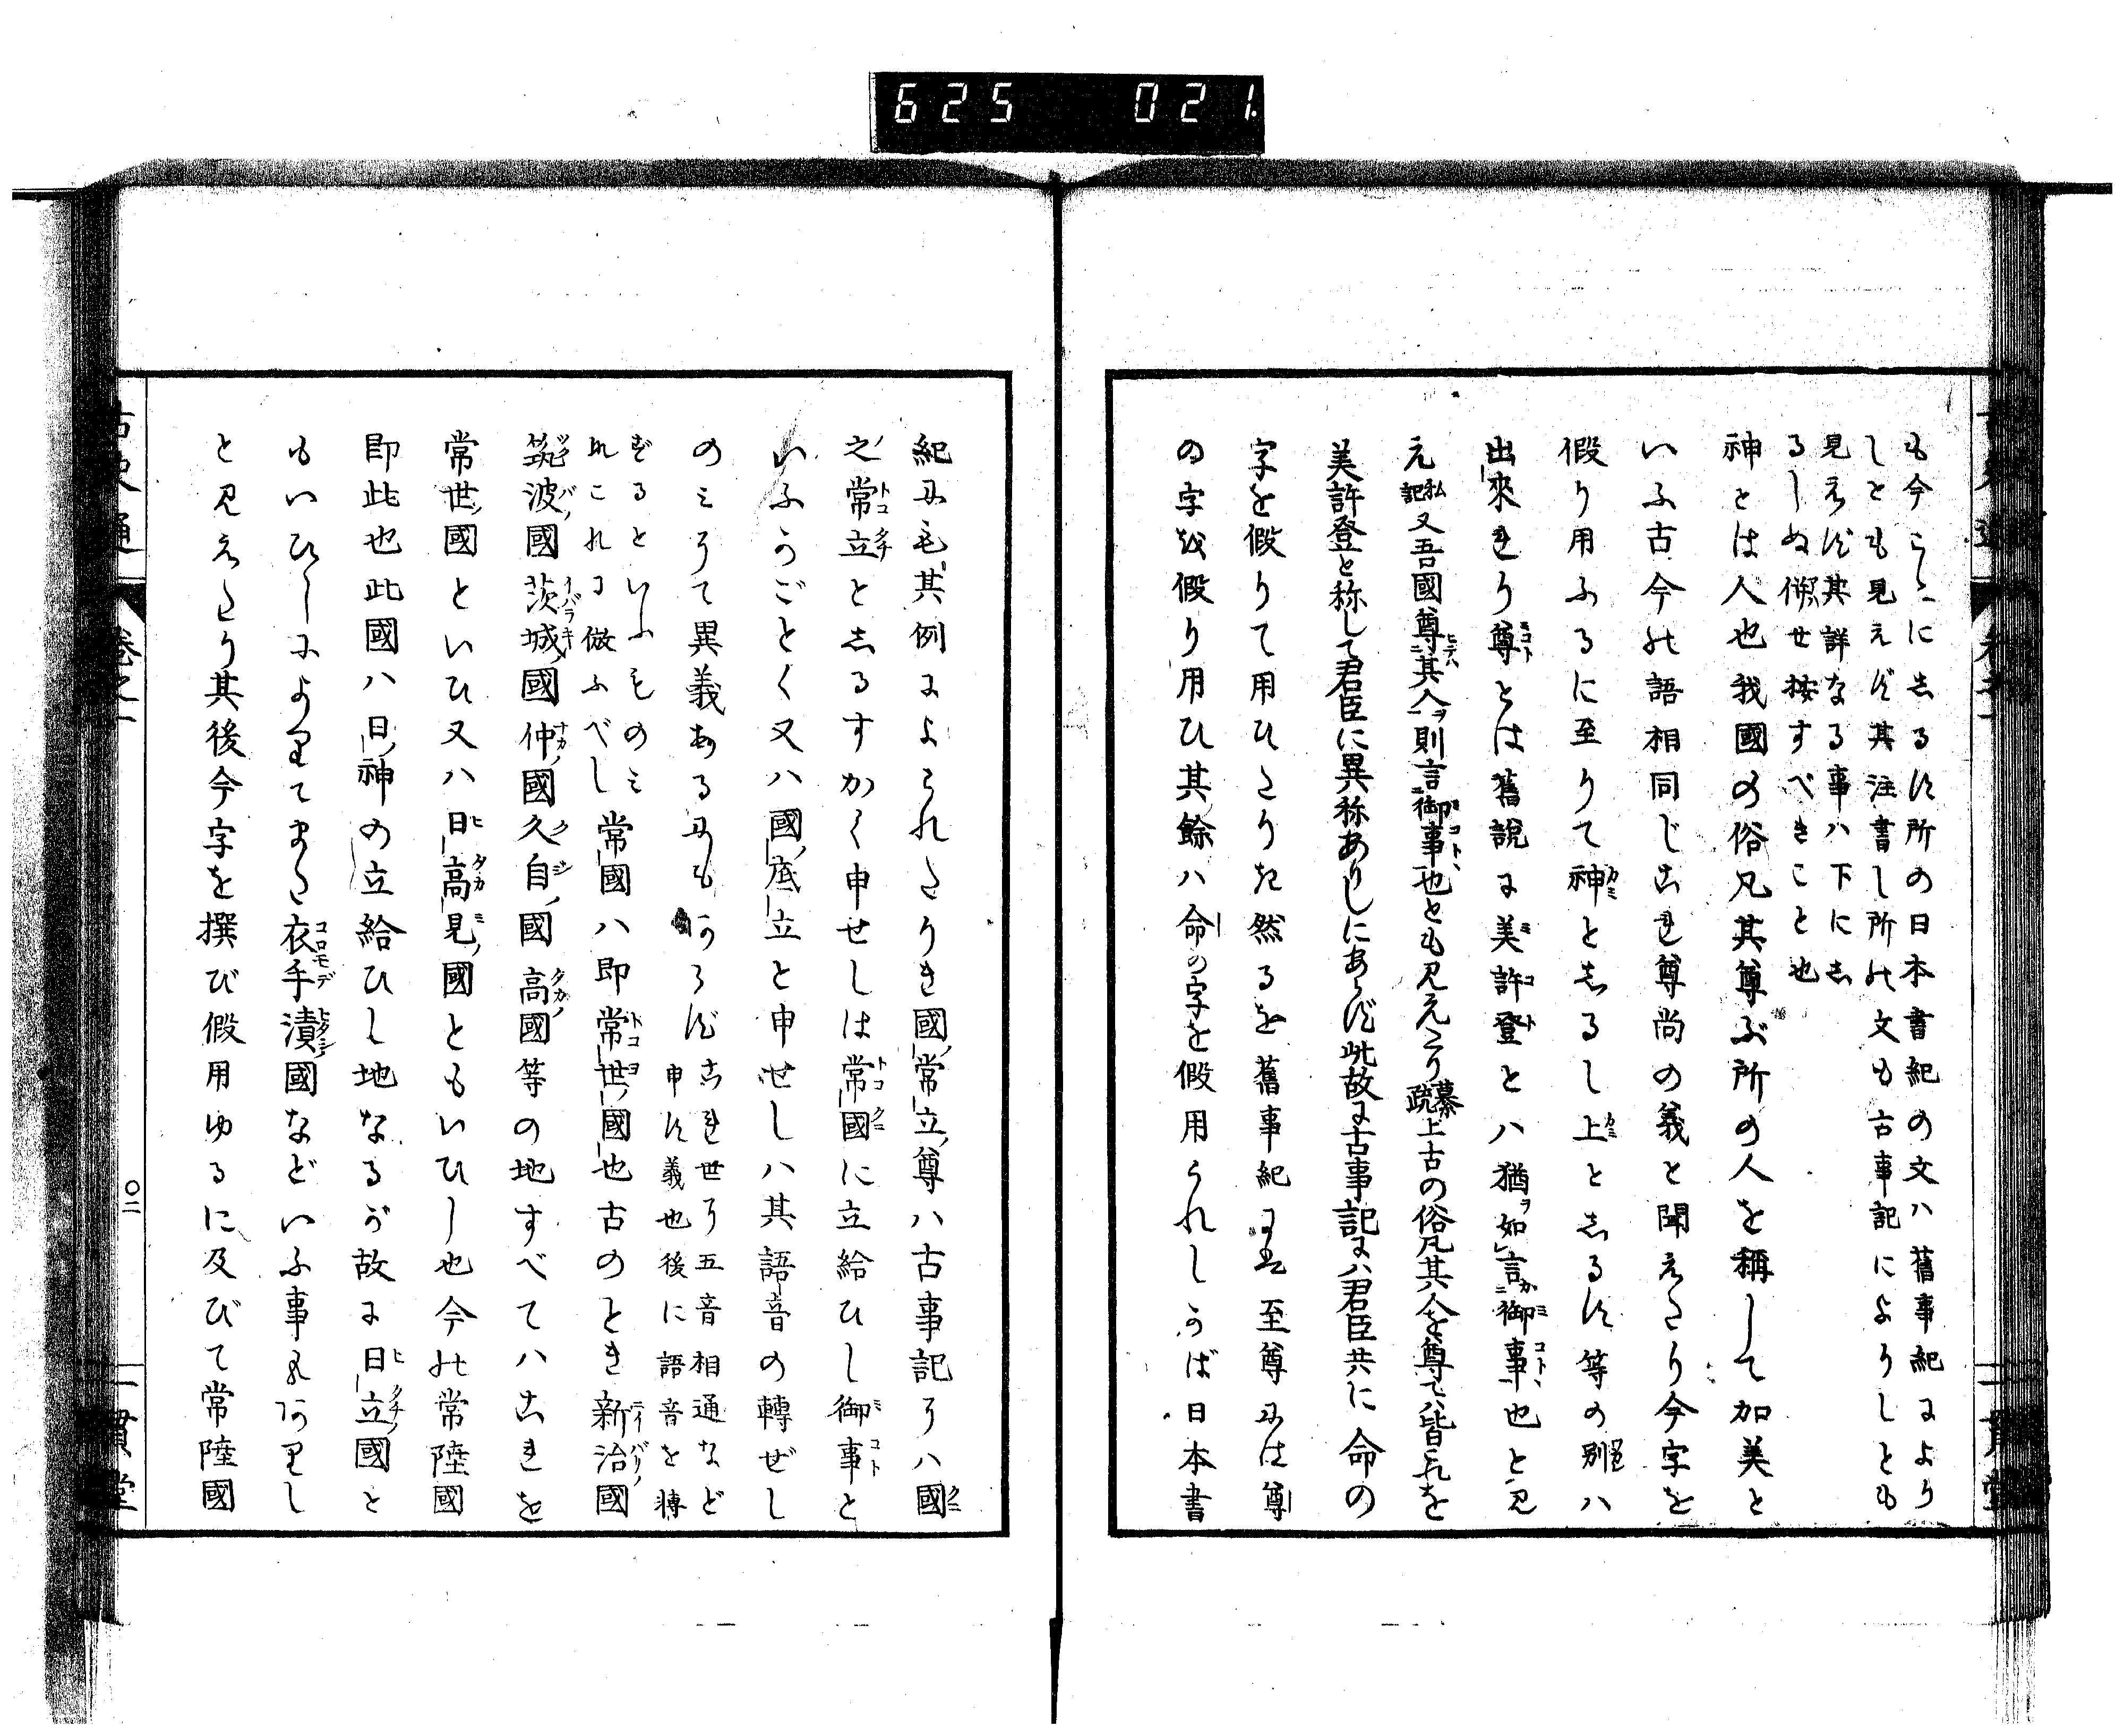 625 021
も今こゝにしるす所の日本書紀の文ハ舊事紀により
しとも見えず其注書し所の文も古事記によりしとも
見えず其詳なる事ハ下にし
るしぬ併せ按すべきこと也
神とは人也我國の俗凡其尊ぶ所の人を稱して加美と
いふ古今の語相同じこれ尊尚の義と聞えたり今字を
假り用ふるに至りて神としるし上としるす等の別ハ
出來れり尊とは舊説に美許登とハ猶如言御事也と見
え私記又吾國尊其人則言御事也とも見えたり纂疏上古の俗凡其人を尊てハ皆これを
美許登と称して君臣に異称ありしにあらず此故に古事記にハ君臣共に命の
字を假りて用ひたりき然るを舊事紀に至尊には尊
の字を假り用ひ其餘ハ命の字を假用られしかば日本書
紀にも其例によられたりき國常立尊ハ古事記にハ國
之常立としるすかく申せしは常國に立給ひし御事と
いふがごとく又ハ國底立と申せしハ其語音の轉ぜし
のミにて異義あるにもあらずこれ世に五音相通など
申す義也後に語音を轉
ずるといふものミ
なこれに倣ふべし常國ハ即常世國也古のとき新治國
筑波國茨城國仲國久自國高國等の地すべてハこれを
常世國といひ又ハ日高見國ともいひし也今の常陸國
即此也此國ハ日神の立給ひし地なるが故に日立國と
もいひしによりてまた衣手漬國などいふ事もありし
と見えたり其後今字を撰び假用ゆるに及びて常陸國
古史通
卷之一
〇二
一貫堂